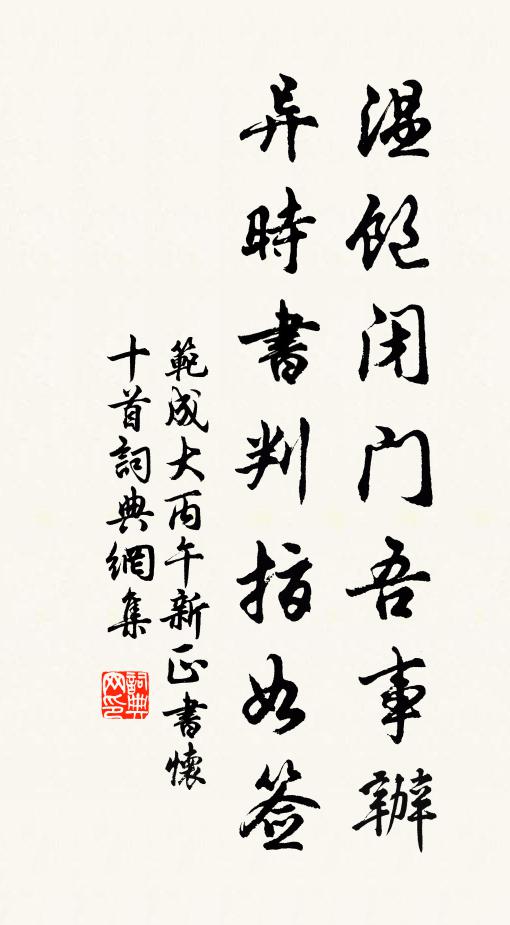 温饱闭门吾事辦
异時書判指如签
範成大丙午新正書懷
十首詞典網集
詞典网印